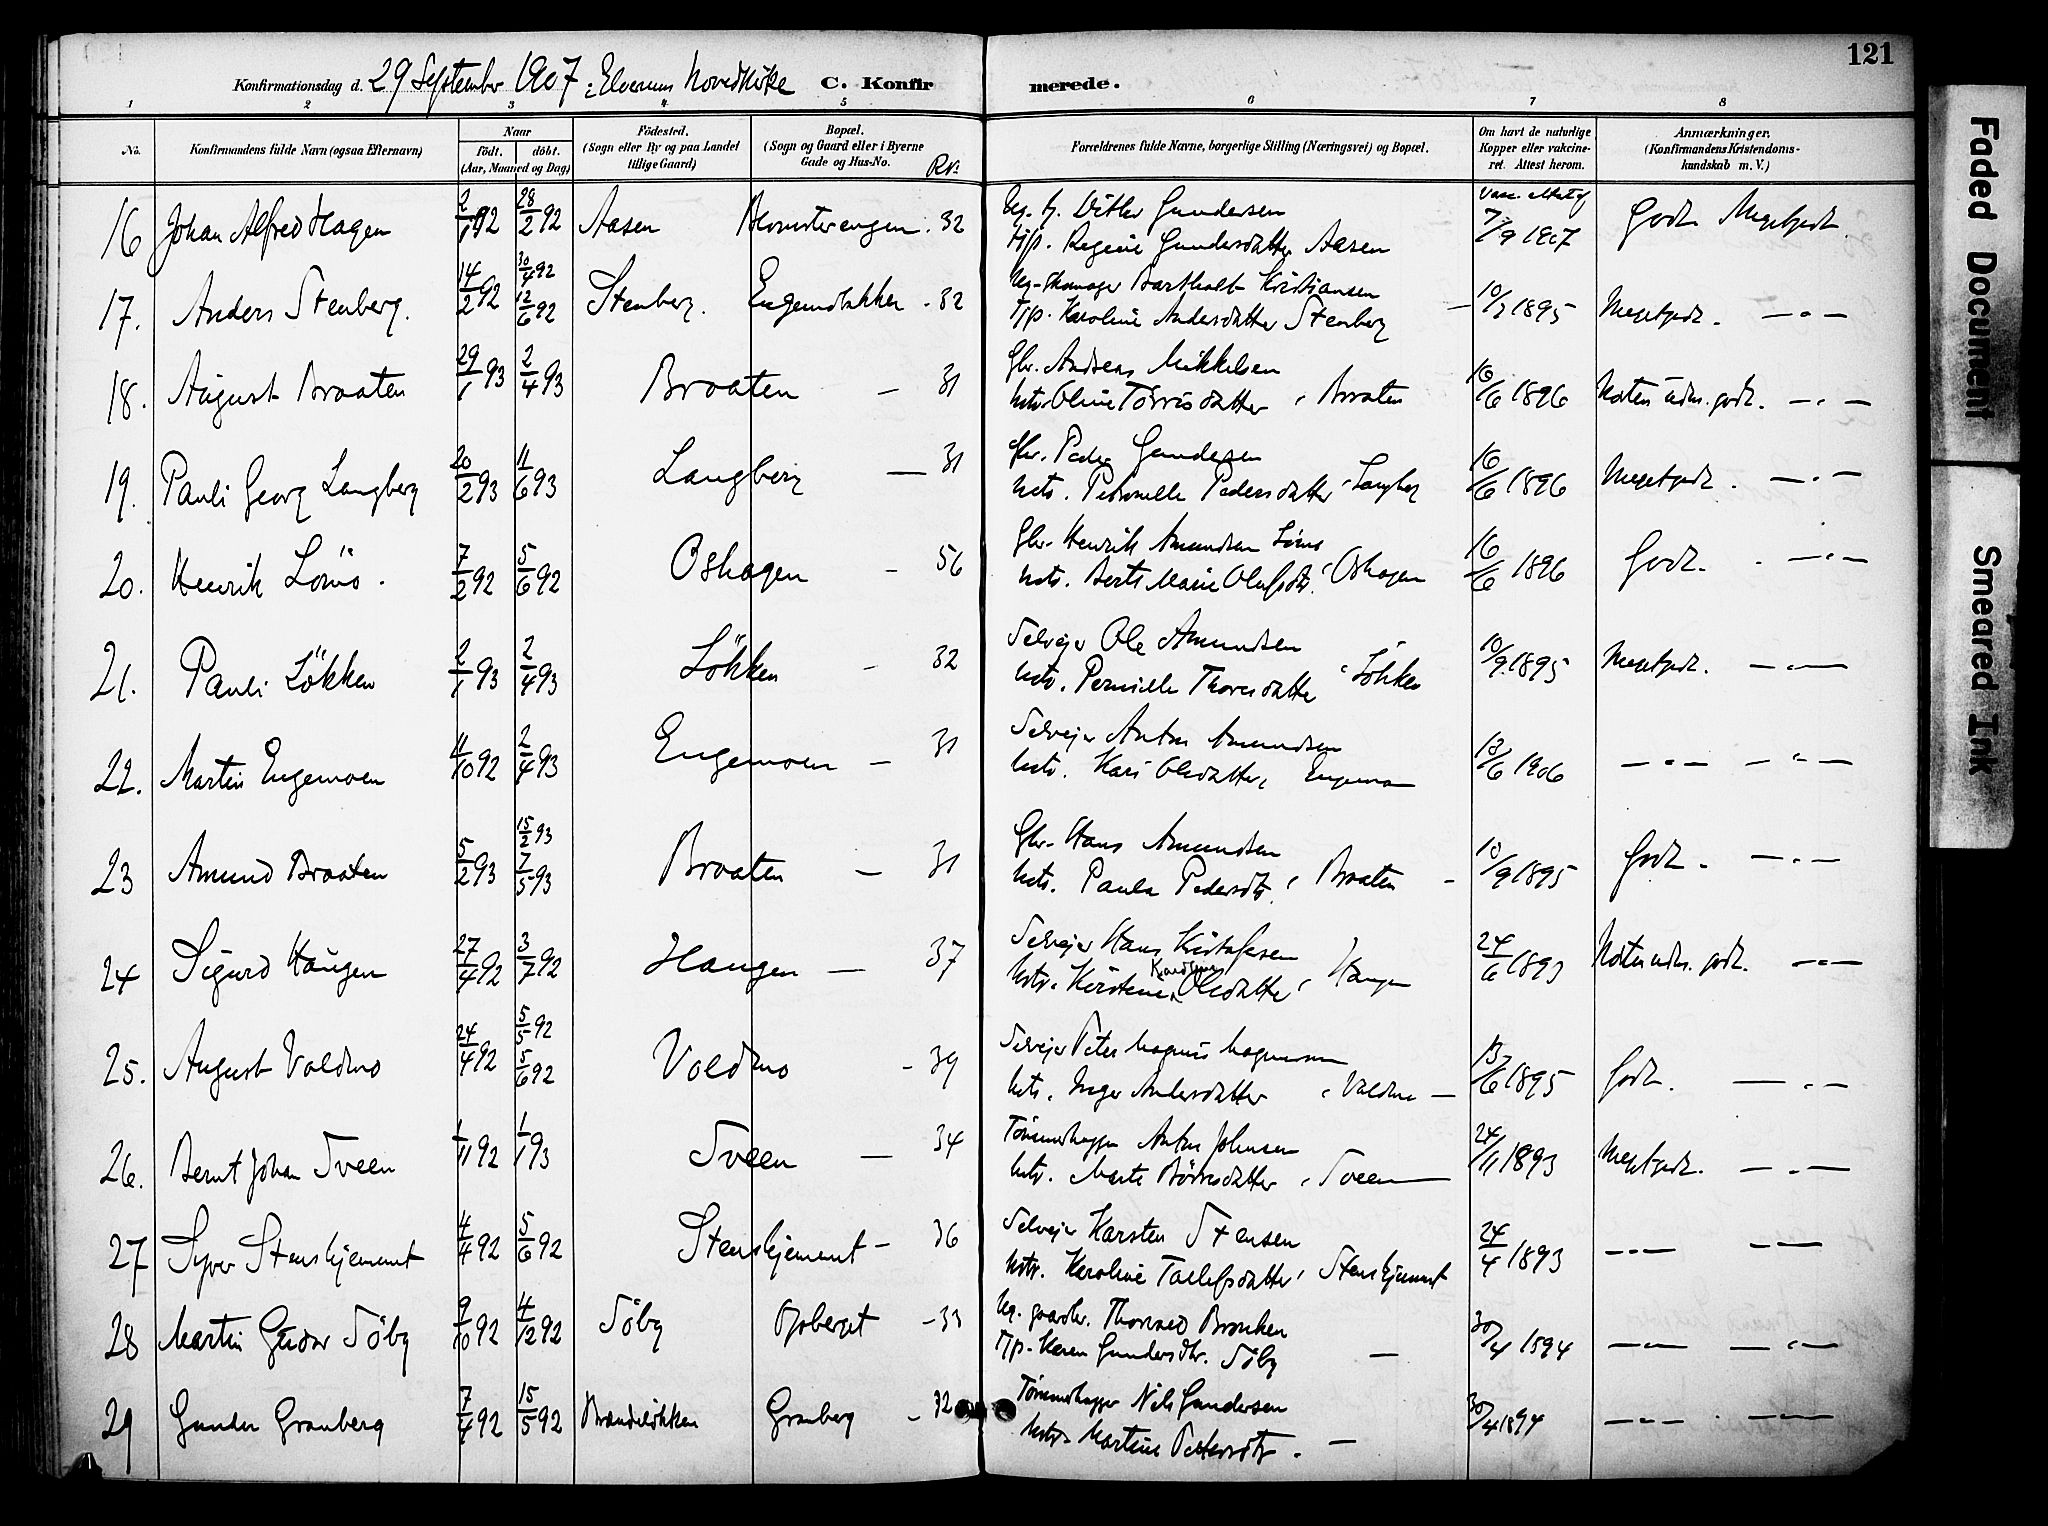 121
Konfirmationsdag d. 29 September 1907 i Elverum Hovedkirke C. Konfirmerede.
1 2 3 4 5 6 7 8
No. Konfirmandens fulde Navn (ogsaa Efternavn) Naar født. døbt. (Aar, Maaned og Dag) Fødested. (Sogn eller By og paa Landet tillige Gaard) Bopæl. (Sogn og Gaard eller i Byerne Gade og Hus-No. Forældrenes fulde Navne, borgerlige Stilling (Næringsvei) og Bopæl. Om havt de naturlige Kopper eller vakcineret. Attest herom. Anmærkninger. (Konfirmandens Kristendomskundskab m. V.)
16 Johan Alfred Hagen 2/1 92 28/2 92 Aasen 32 Ditlev Gundersen
Regine Gundersdatter Aasen 7/9 1907 Godt Megetgodt
17. Anders Stenberg. 14/2 92 30/4 92 12/6 92 Stenberg. Engemobakken - 32 Bartholt Kristiansen
Karoline Andersdatter Stenberg 10/7 1895 Megetgodt. — " —
18. August Braaten 29/1 93 2/4 93 Braaten — 31 Gbr. Andreas Mikkelsen
Hstr. Oline Törrisdatter, Braaten 16/6 1896 Noten udm. godt. — " —
19. Pauli Georg Langberg 20/2 93 11/6 93 Langberg — 31 Gbr. Peder Gundersen
Hstr. Petronelle Pedersdatter, Langberg 16/6 1896 Megetgodt. — " —
20. Henrik Lömo. 7/2 92 5/6 92 Oshagen - 56 Gbr. Henrik Amundsen Lömo
Hstr. Berte Marie Olufsdtr., Oshagen 16/6 1896 Godt. — " —
21. Pauli Lökken 2/1 93 2/4 93 Lökken - 32 Selvejer Ole Amundsen
Hstr. Pernille Thoresdatter, Lökken 10/9 1895 Megetgodt. — " —
22. Martin Engemoen 11/10 92 2/4 93 Engemoen — 31 Selvejer Anton Amundsen
Hstr. Kari Olsdatter, Engemoen 13/6 1906 — " — — " —
23 Amund Braaten 5/2 93 15/2 93 7/5 93 Braaten — 31 Gbr. Hans Amundsen
Hstr. Paula Pedersdtr., Braaten - 10/9 1895 Godt. — " —
24 Sigurd Haugen 27/4 92 3/7 92 Haugen — 37 Selvejer Hans Kristofersen
Hstr. Olsdatter, Haugen 24/6 1893 Noten udm. godt. — " —
25. August Voldmo 24/4 92 5/5 92 5/6 92 Voldmo - 39 Selvejer Peter Magnus Magnusson
Hstr. Inger Andersdatter, Voldmo — 13/6 1895 Godt. — " —
26. Bernt Johan Sveen 1/11 92 1/1 93 Sveen — 34 Tømmerhugger Anton Johnsen
Hstr. Marte Börresdatter, Sveen 24/11 1893 Megetgodt. — " —
27 Syver Stenshjemmet 4/4 92 5/6 92 Stenshjemmet - 36 Selvejer Karsten Stensen
Hstr. Karoline Tollefsdatter, Stenshjemmet 24/4 1893 — " — — " —
28 Martin Gudor Söby 9/10 92 4/12 92 Söby Gjöberget - 33 Thorvald Bronken
Karen Gundersdtr. Söby — 30/4 1894 — " — — " —
29 Gunder Granberg 7/4 92 15/5 92 Brændelökken Granberg - 32 Tømmerhugger Nils Gundersen
Hstr. Martine Pedersdtr. — 30/4 1894 — " — . — " —
Faded Document
Smeared Ink